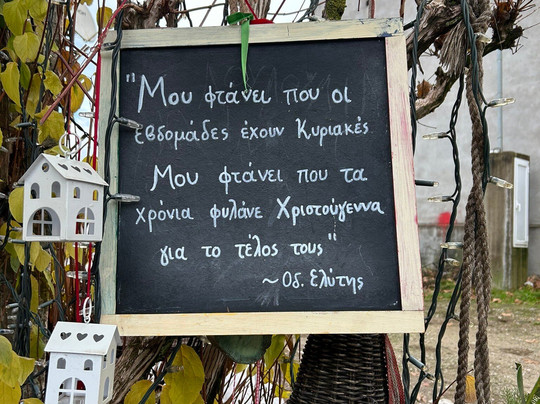 "Μου φτάνει που οι
εβδομάδες έχουν Κυριακές
Μου φτάνει που τα
χρόνια φυλάνε Χριστούγεννα
για το τέλος τους"
~ Οδ. Ελύτης